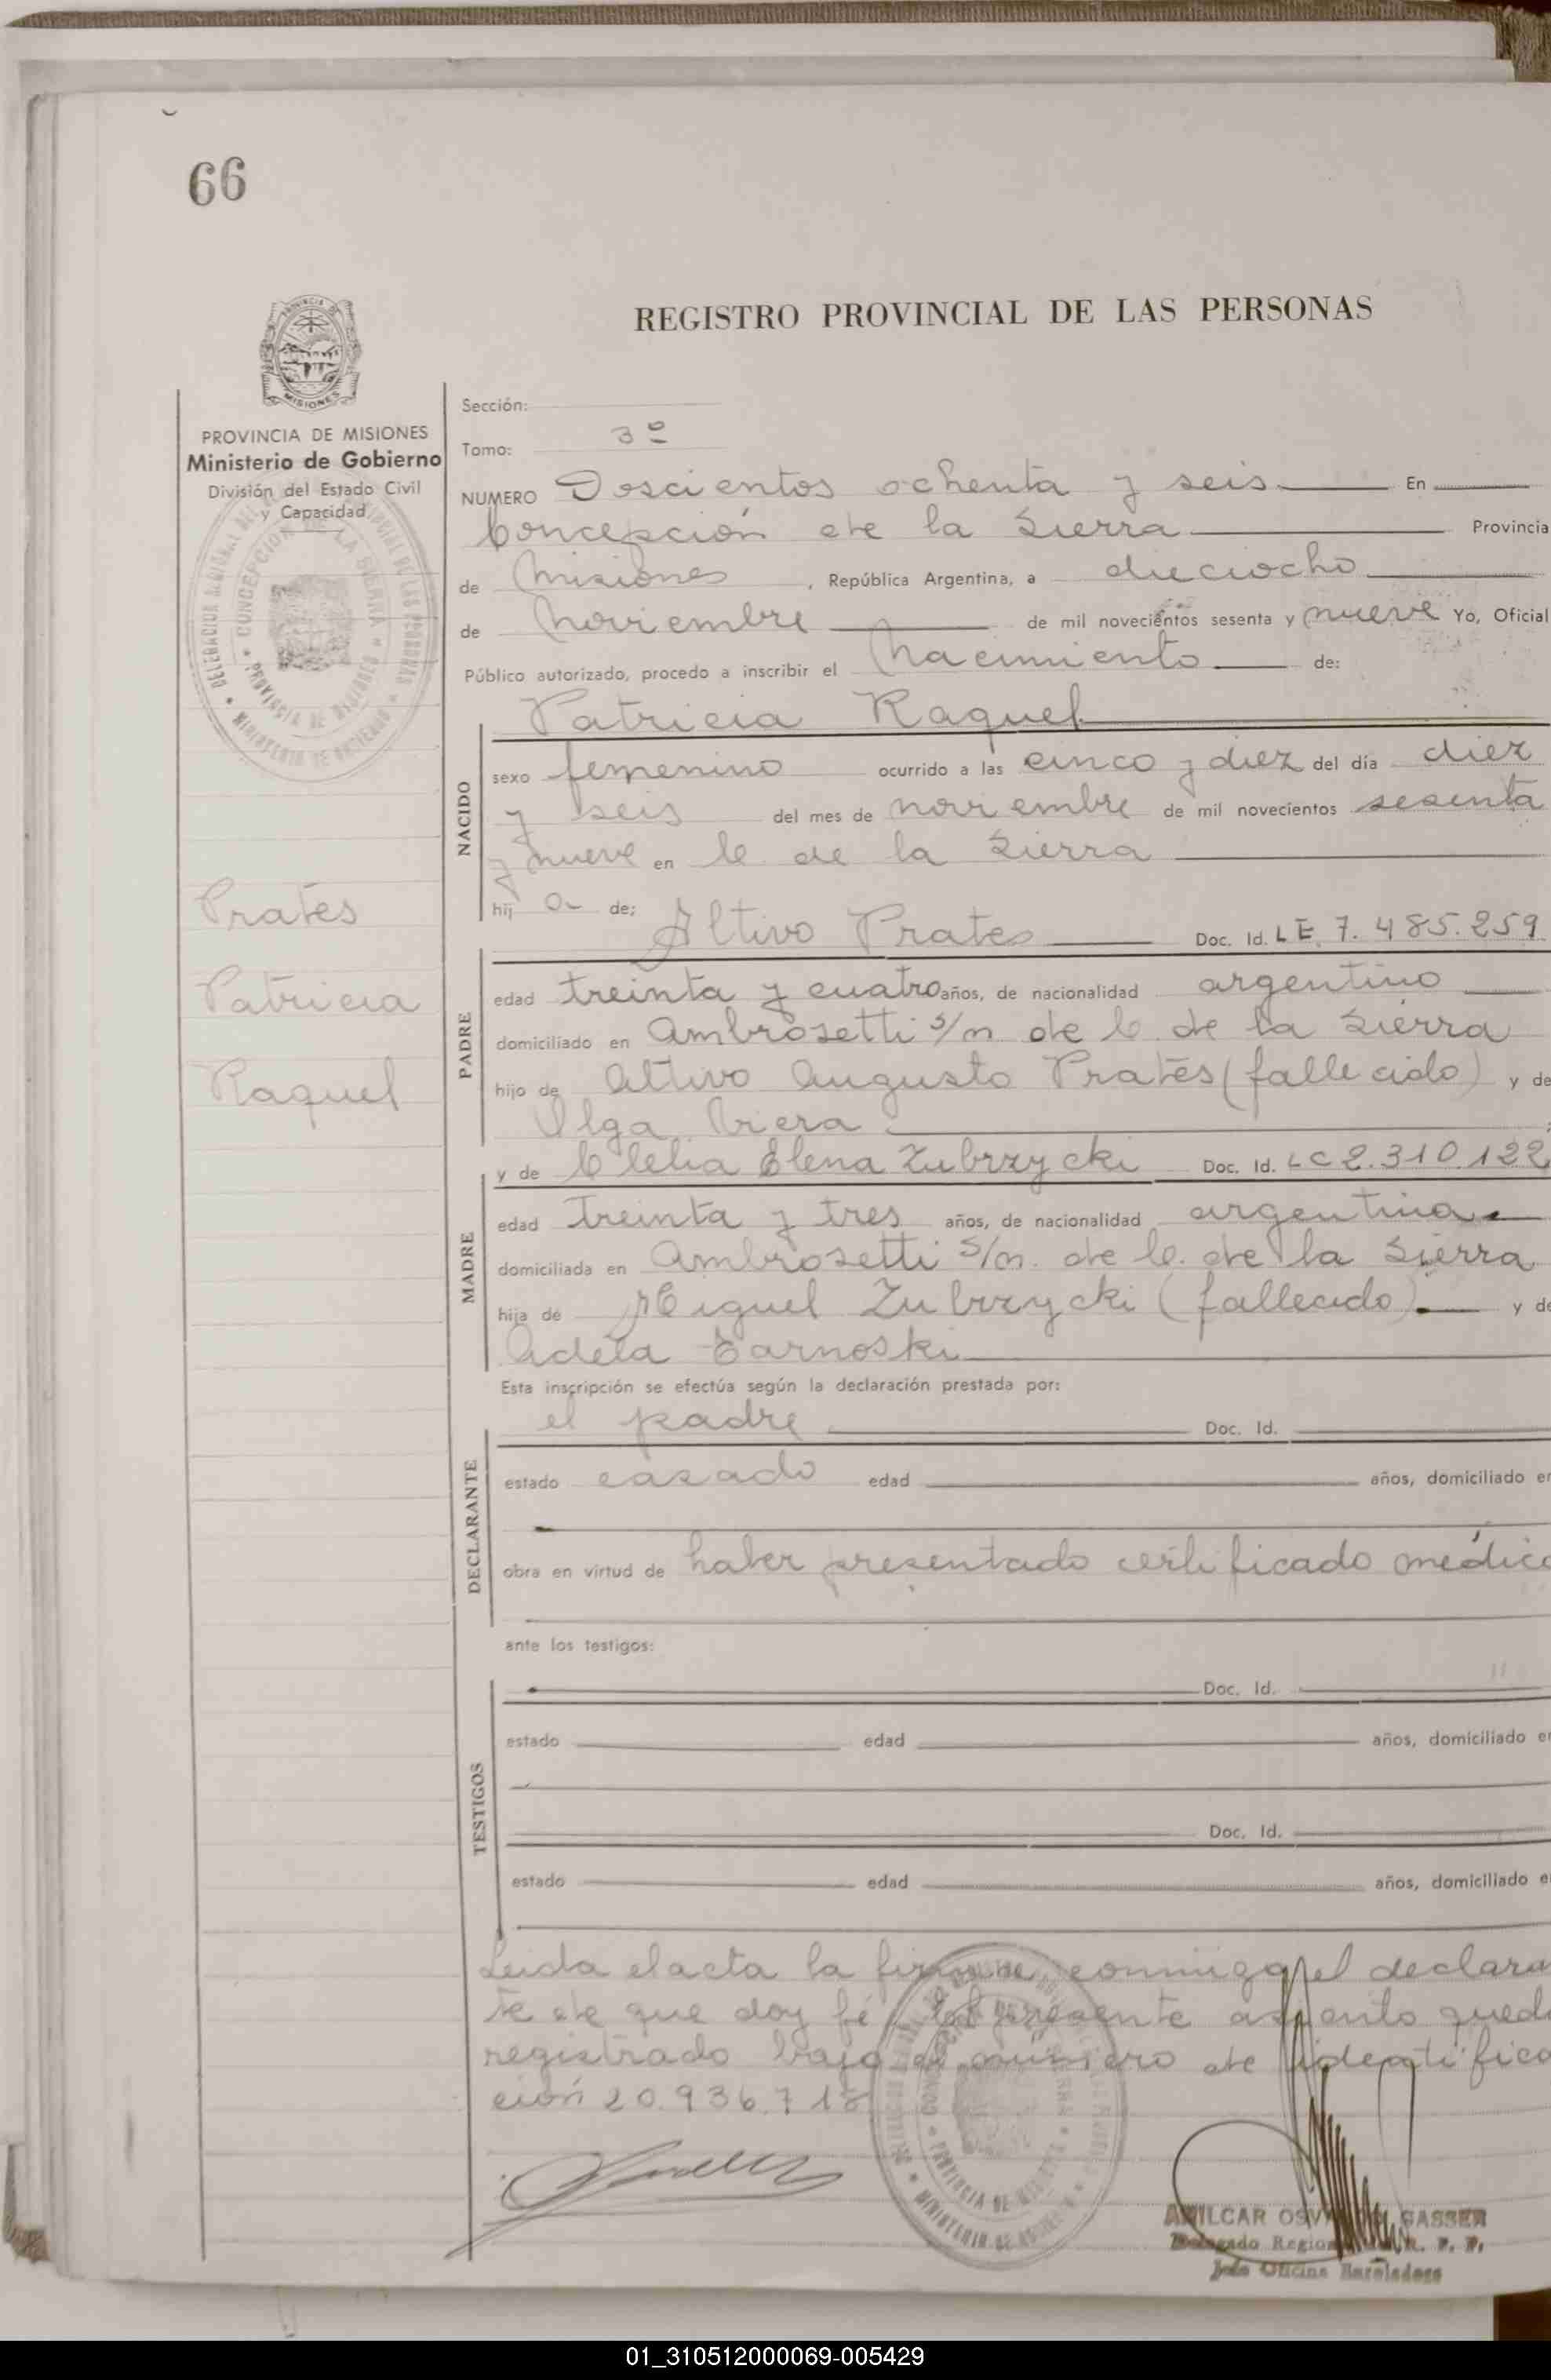 66
REGISTRO PROVINCIAL DE LAS PERSONAS
PROVINCIA DE MISIONES
Ministerio de Gobierno
División del Estado Civil
y Capacidad
Sección:
Tomo: 3º
NUMERO Doscientos ochenta y seis En
Concepción de la Sierra Provincia
de Misiones, República Argentina, a dieciocho
de Noviembre de mil novecientos sesenta y nueve Yo, Oficial
Público autorizado, procedo a inscribir el Nacimiento de:
Patricia Raquel
NACIDO
sexo femenino ocurrido a las cinco y diez del día diez
y seis del mes de noviembre de mil novecientos sesenta
y nueve en C. de la Sierra
hij a de: Altivo Prates Doc. Id. LE 7.485.259
Prates
Patricia
Raquel
PADRE
edad treinta y cuatro años, de nacionalidad argentino
domiciliado en Ambrosetti s/n de C. de la Sierra
hijo de Altivo Augusto Prates (fallecido) y de
Olga
y de Clelia Elena Zubrzycki Doc. Id. LC 2.310.122
MADRE
edad treinta y tres años, de nacionalidad argentina
domiciliada en Ambrosetti s/n. de C. de la Sierra
hija de Miguel Zubrzycki (fallecido) y de
Adela
Esta inscripción se efectúa según la declaración prestada por:
el padre Doc. Id.
DECLARANTE
estado casado edad años, domiciliado en
obra en virtud de haber presentado certificado médico
ante los testigos:
TESTIGOS
Doc. Id.
estado edad años, domiciliado en
Doc. Id.
estado edad años, domiciliado e
Leida el acta la firma conmigo el declaran
te de que doy fé. El presente asiento queda
registrado bajo el número de identifica
ción 20.936.718
AMILCAR OSVALDO GASSER
Delegado Regional R. P. P.
Jefe Oficina
01_310512000069-005429